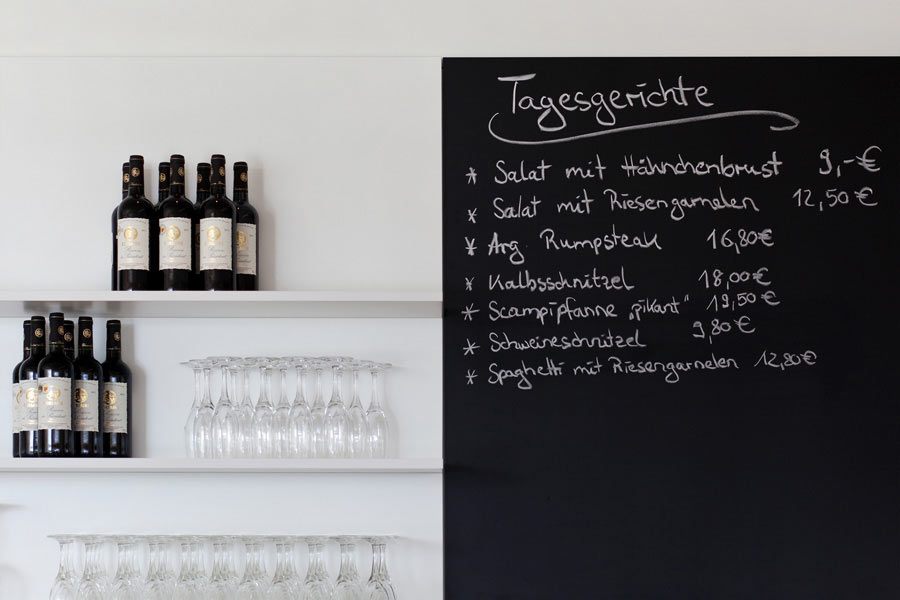 Tagesgerichte
* Salat mit Hähnchenbrust 9,-€
* Salat mit Riesengarnelen 12,50€
* Arg. Rumpsteak 16,80€
* Kalbsschnitzel 18,00€
* Scampipfanne „pikant" 19,50€
* Schweineschnitzel 9,80€
* Spaghetti mit Riesengarnelen 12,80€